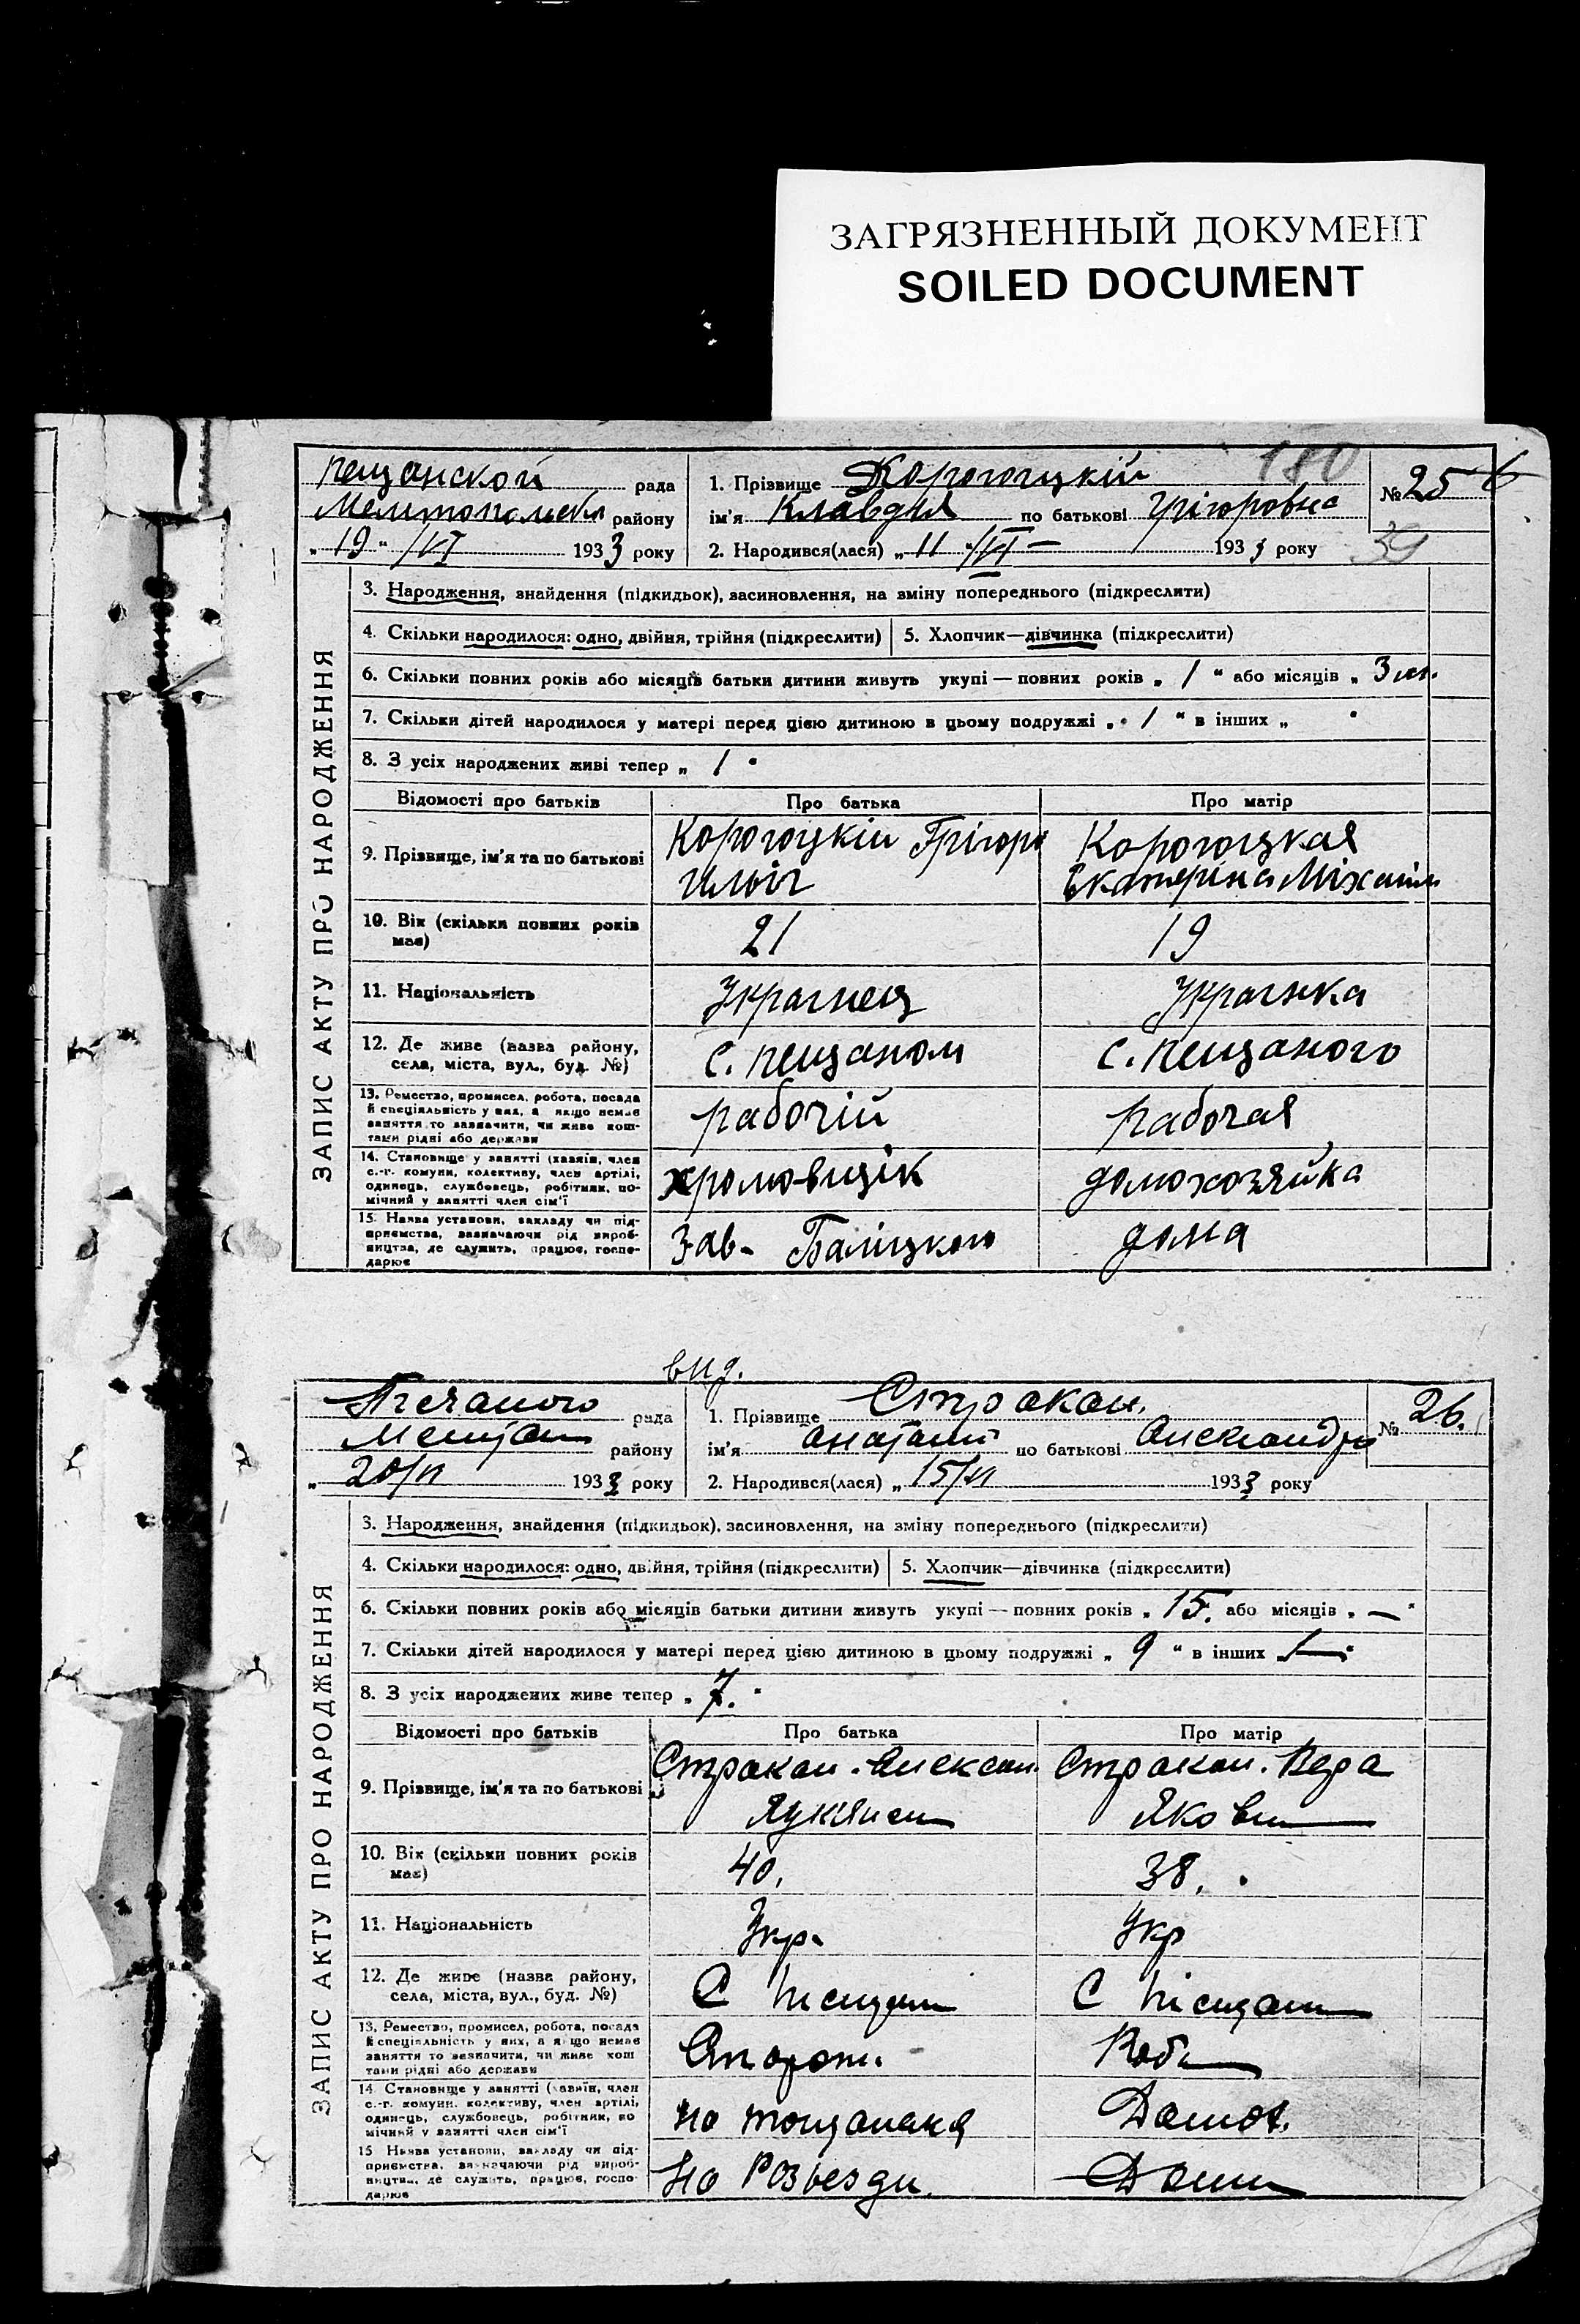 ЗАГРЯЗНЕННЫЙ ДОКУМЕНТ
SOILED DOCUMENT
180
пещанской рада
1. Прізвище Корогоцкій
№ 25 6
Мелитопольск району
ім'я Клавдия по батькові Грігоровна
„19“ /VI 1933 року
2. Народився(лася) „11“ /VI — 1933 року
39
ЗАПИС АКТУ ПРО НАРОДЖЕННЯ
3. Народження, знайдення (підкидьок), засиновлення, на зміну попереднього (підкреслити)
4. Скільки народилося: одно, двійня, трійня (підкреслити) 5. Хлопчик—дівчинка (підкреслити)
6. Скільки повних років або місяців батьки дитини живуть укупі — повних років „ 1 “ або місяців „ 3 м.
7. Скільки дітей народилося у матері перед цією дитиною в цьому подружжі „ 1 “ в інших „ “
8. З усіх народжених живі тепер „ 1 “
Відомості про батьків Про батька Про матір
9. Прізвище, ім'я та по батькові
Корогоцкій Грігорі
Ильіч
Корогоцкая
Екатеріна Міхаіл
10. Вік (скільки повних років
має)
21
19
11. Національність
Украінец
Украінка
12. Де живе (назва району,
села, міста, вул., буд. №)
с. пещаном
с. пещаного
13. Ремество, промисел, робота, посада
й спеціяльність у них, а якщо немає
заняття то зазначити, чи живе кош-
тами рідні або держави
рабочій
рабочая
14. Становище у занятті (хазяїн, член
с.-г. комуни, колективу, член артілі,
одинець, службовець, робітник, по-
мічний у занятті член сім'ї
хромовщік
домохозяйка
15. Назва установи, закладу чи під-
приємства, зазначаючи рід вироб-
ництва, де служить, працює, госпо-
дарює
Зав- Баліцкого
дома
вид.
Песчаного рада
1. Прізвище Стракан.
№ 26.
Мелитоп району
ім'я Анатолий по батькові Александр
„ 20/VI 1933 року
2. Народився(лася) „ 15/VI 1933 року
ЗАПИС АКТУ ПРО НАРОДЖЕННЯ
3. Народження, знайдення (підкидьок), засиновлення, на зміну попереднього (підкреслити)
4. Скільки народилося: одно, двійня, трійня (підкреслити) 5. Хлопчик—дівчинка (підкреслити)
6. Скільки повних років або місяців батьки дитини живуть укупі — повних років „ 15. або місяців „ — “
7. Скільки дітей народилося у матері перед цією дитиною в цьому подружжі „ 9 “ в інших „ — “
8. З усіх народжених живе тепер „ 7. “
Відомості про батьків Про батька Про матір
9. Прізвище, ім'я та по батькові
Стракан. Алексан
Лукянов
Стракан. Вера
Яковл
10. Вік (скільки повних років
має)
40.
38.
11. Національність
Укр.
Укр
12. Де живе (назва району,
села, міста, вул., буд. №)
С Піещан
С Піещан
13. Ремество, промисел, робота, посада
й спеціяльність у них, а якщо немає
заняття то зазначити, чи живе кош
тами рідні або держави
Сторож.
Раб
14. Становище у занятті (хазяїн, член
с.-г. комуни, колективу, член артілі,
одинець, службовець, робітник, по
мічний у занятті член сім'ї
Домох.
15 Назва установи, закладу чи під-
приємства, зазначаючи рід вироб-
ництва, де служить, працює, госпо-
дарює
На Розьезди.
Дома